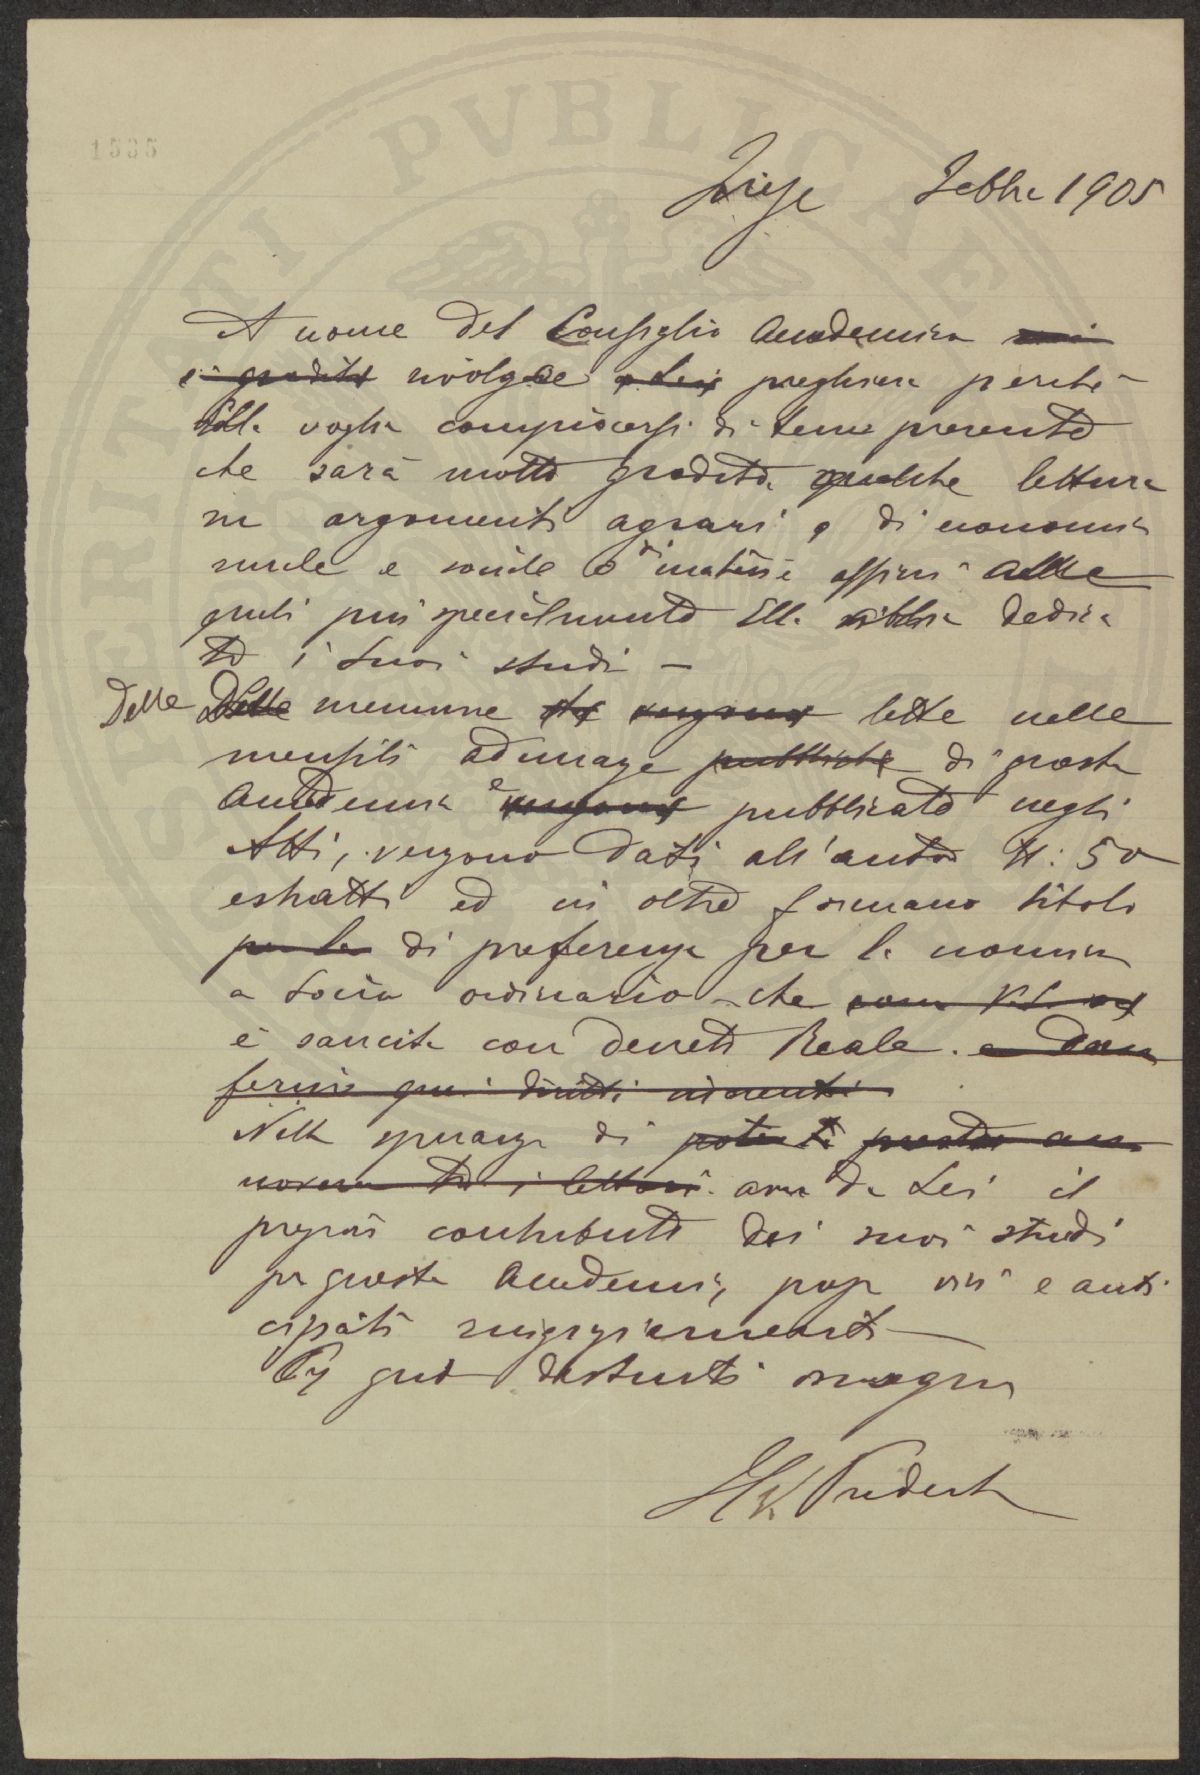 1535
PVBLICAE
Febbr 1905
A nome del Consiglio Accademico
rivolgo preghiera perchè
Ella voglia compiacersi di tener presente
che sarà molto gradita qualche lettura
in argomenti agrari o di economia
rurale e sociale o di materie affini alle
quali più specialmente Ella abbia dedica
to i suoi studi —
Delle Delle memorie lette nelle
mensili adunanze pubbliche di questa
Accademia e pubblicate negli
Atti, vengono dati all'autore N: 50
estratti ed in oltre formano titolo
per la di preferenza per la nomina
a Socio ordinario - che
è sancita con decreto Reale.
quei diritti
Nella speranza di
i lettori avere da Lei il
contributo dei suoi studi
per questa Accademia, porgo vivi e anti
cipati ringraziamenti
Il Presidente